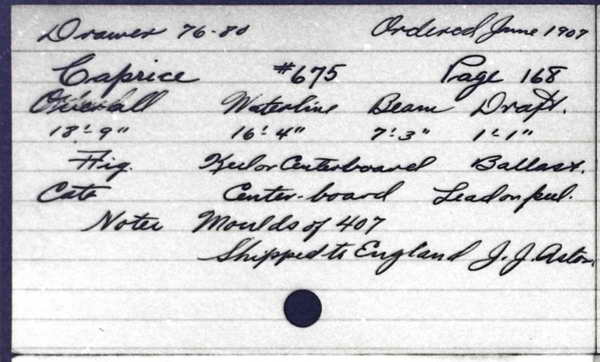 Drawer 76-80 Ordered June 1907
Caprice #675 Page 168
Overall Waterline Beam Draft.
18'-9" 16'-4" 7'-3" 1'-1"
Rig. Keel or Centerboard Ballast.
Cat Center-board Lead on keel.
Note Moulds of 407
Shipped to England J. J. Astor.